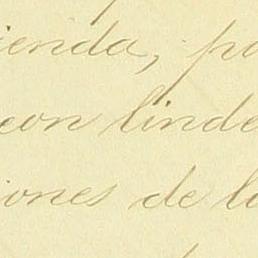 ienda, po
con linde
iones de lo